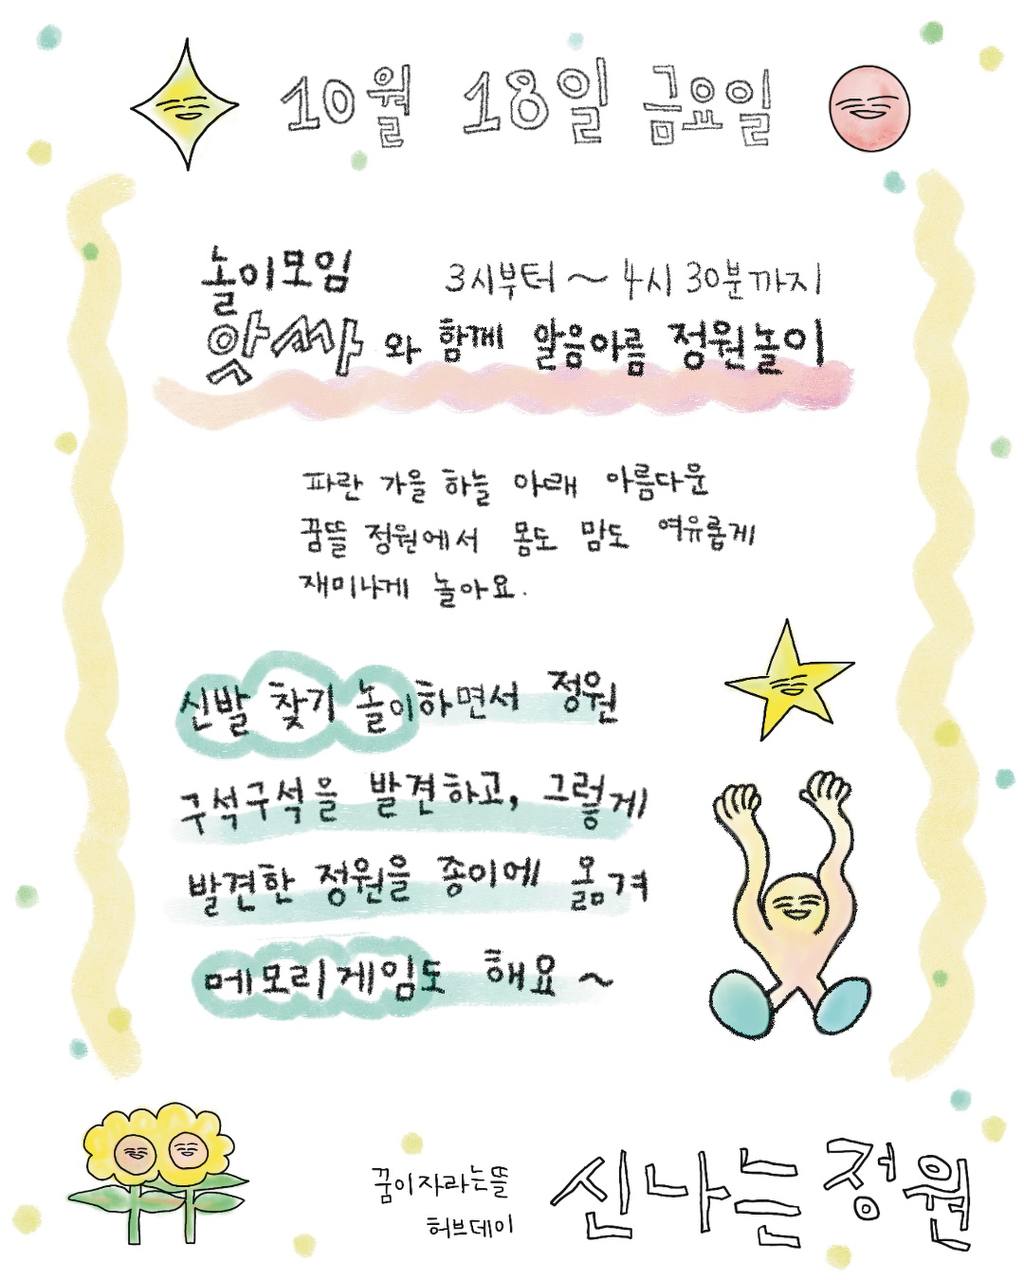 10월 18일 금요일
놀이모임 3시부터 ~ 4시 30분까지
앗싸와 함께 알음아름 정원놀이
파란 가을 하늘 아래 아름다운
꿈뜰 정원에서 몸도 맘도 여유롭게
재미나게 놀아요.
신발 찾기 놀이하면서 정원
구석구석을 발견하고, 그렇게
발견한 정원을 종이에 옮겨
메모리게임도 해요 ~
꿈이자라는뜰
허브데이
신나는정원